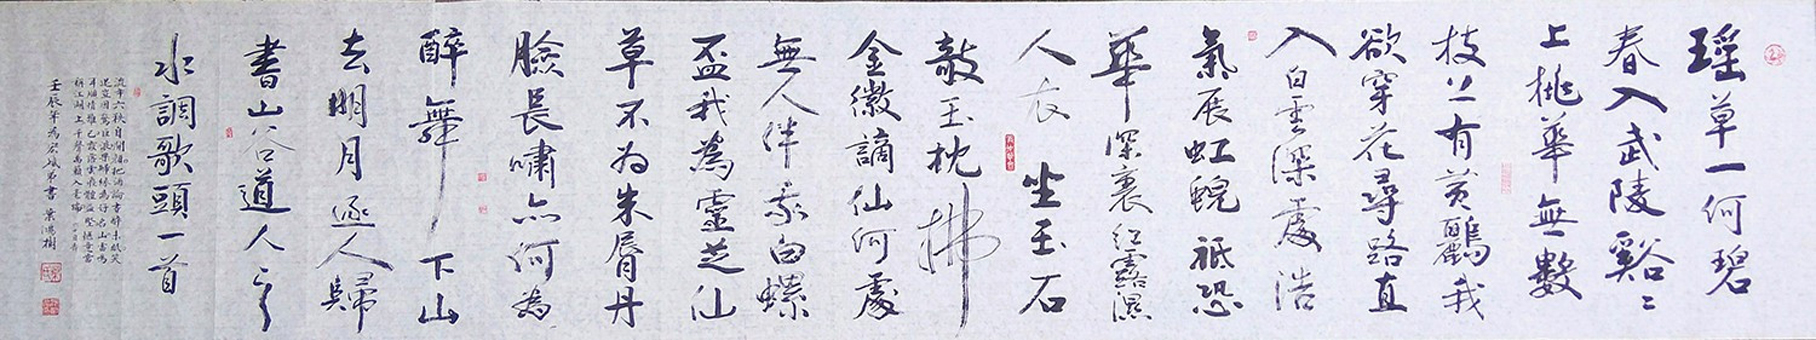 瑶草一何碧
春入武陵谿〻
上桃華無數
枝上有黃鸝我
欲穿花尋路直
入白雲深處浩
氣展虹蜺祗恐
華深裏紅露濕
人衣坐玉石
敲玉枕拂
金徽謫仙何處
無人伴我白螺
盃我為靈芝仙
草不為朱脣丹
臉長嘯亦何為
醉舞下山
去明月逐人歸
書山谷道人之
水調歌頭一首
流年六秩自開顏把酒論書醉未
壬辰年為
弟書